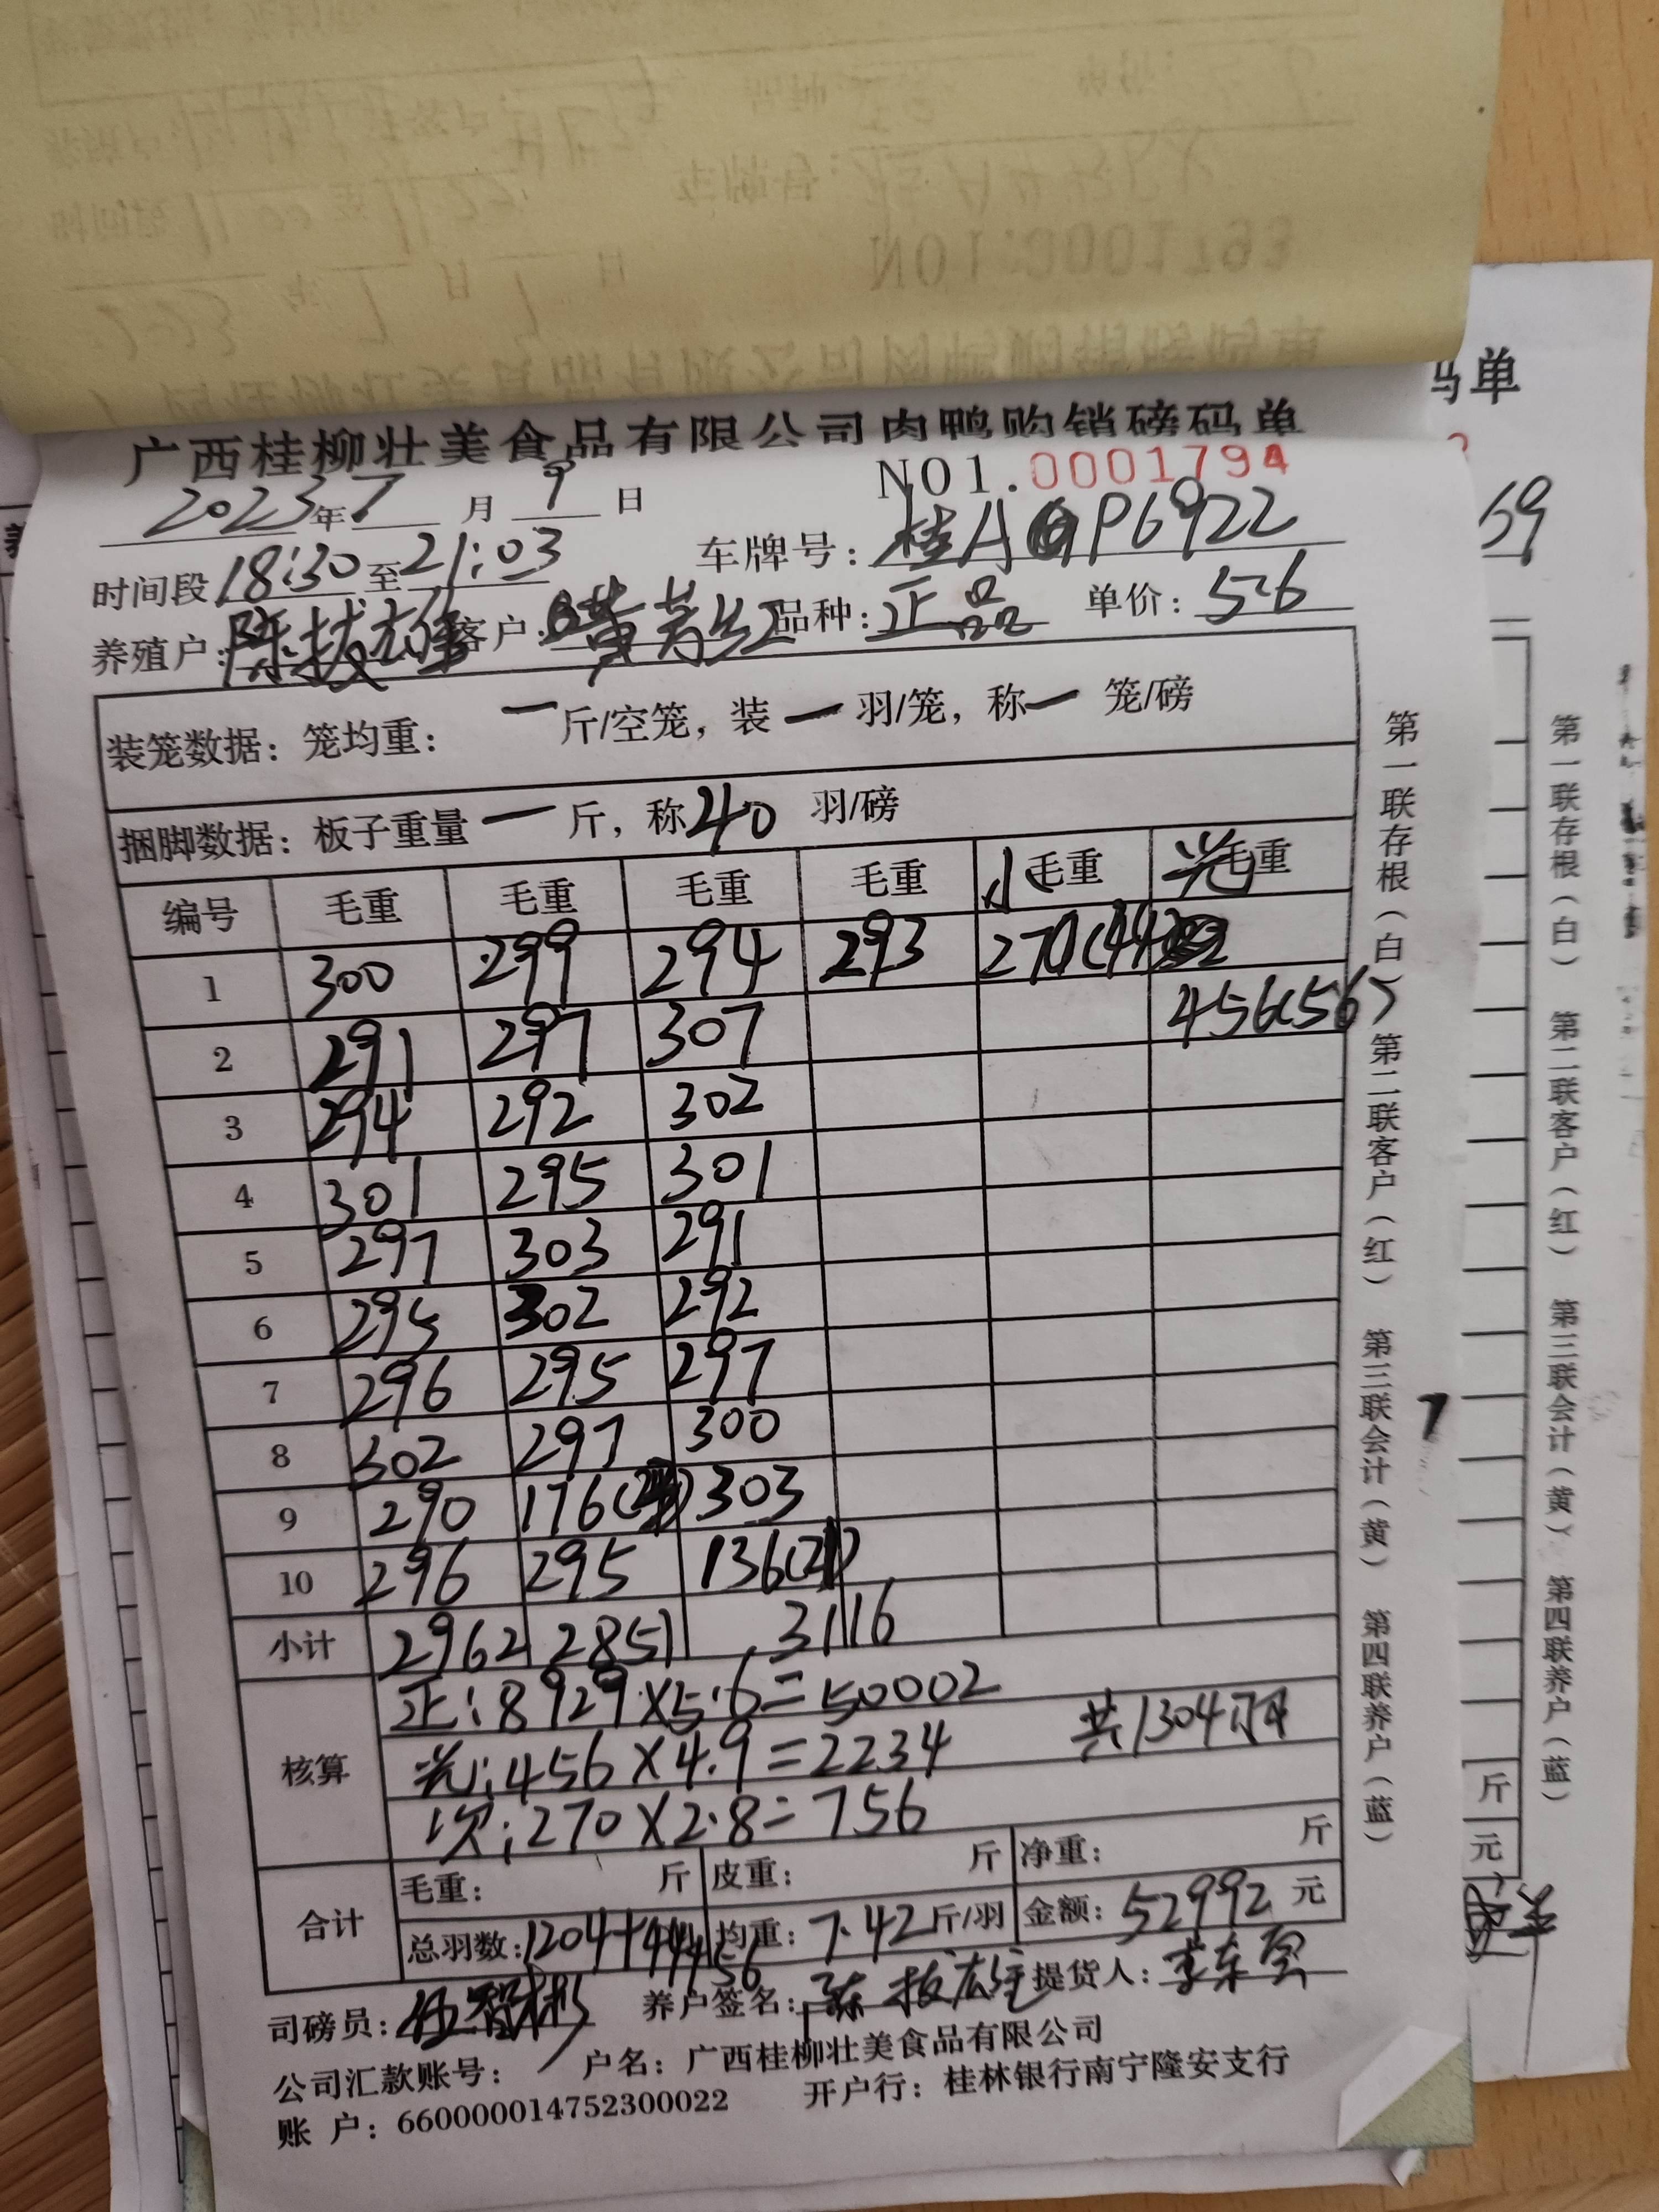 码单
广西桂柳壮美食品有限公司肉鸭购销磅码单
NO1.0001794
2023年7月9日
时间段18:30至21:03 车牌号:桂A P6922
养殖户:陈拔雄 客户:黄芳红 品种:正品 单价:5.6
装笼数据:笼均重:一斤/空笼,装一羽/笼,称一笼/磅
捆脚数据:板子重量一斤,称40羽/磅
编号 毛重 毛重 毛重 毛重 小毛重 光毛重
1 300 299 294 293 270(44)
2 291 297 307 456(56)
3 294 292 302
4 301 295 301
5 297 303 291
6 295 302 292
7 296 295 297
8 302 297 300
9 290 176( ) 303
10 296 295 136(21)
小计 2962 2851 3116
核算 正:8929×5.6=50002
光:456×4.9=2234 共1304羽
次:270×2.8=756
合计 毛重: 斤 皮重: 斤 净重: 斤
总羽数:1204+44+56 均重:7.42斤/羽 金额:52992元
司磅员: 养户签名:陈拔雄 提货人:
公司汇款账号: 户名:广西桂柳壮美食品有限公司
账 户:660000014752300022 开户行:桂林银行南宁隆安支行
第一联存根(白) 第二联客户(红) 第三联会计(黄) 第四联养户(蓝)
59
第一联存根(白) 第二联客户(红) 第三联会计(黄) 第四联养户(蓝)
斤
元